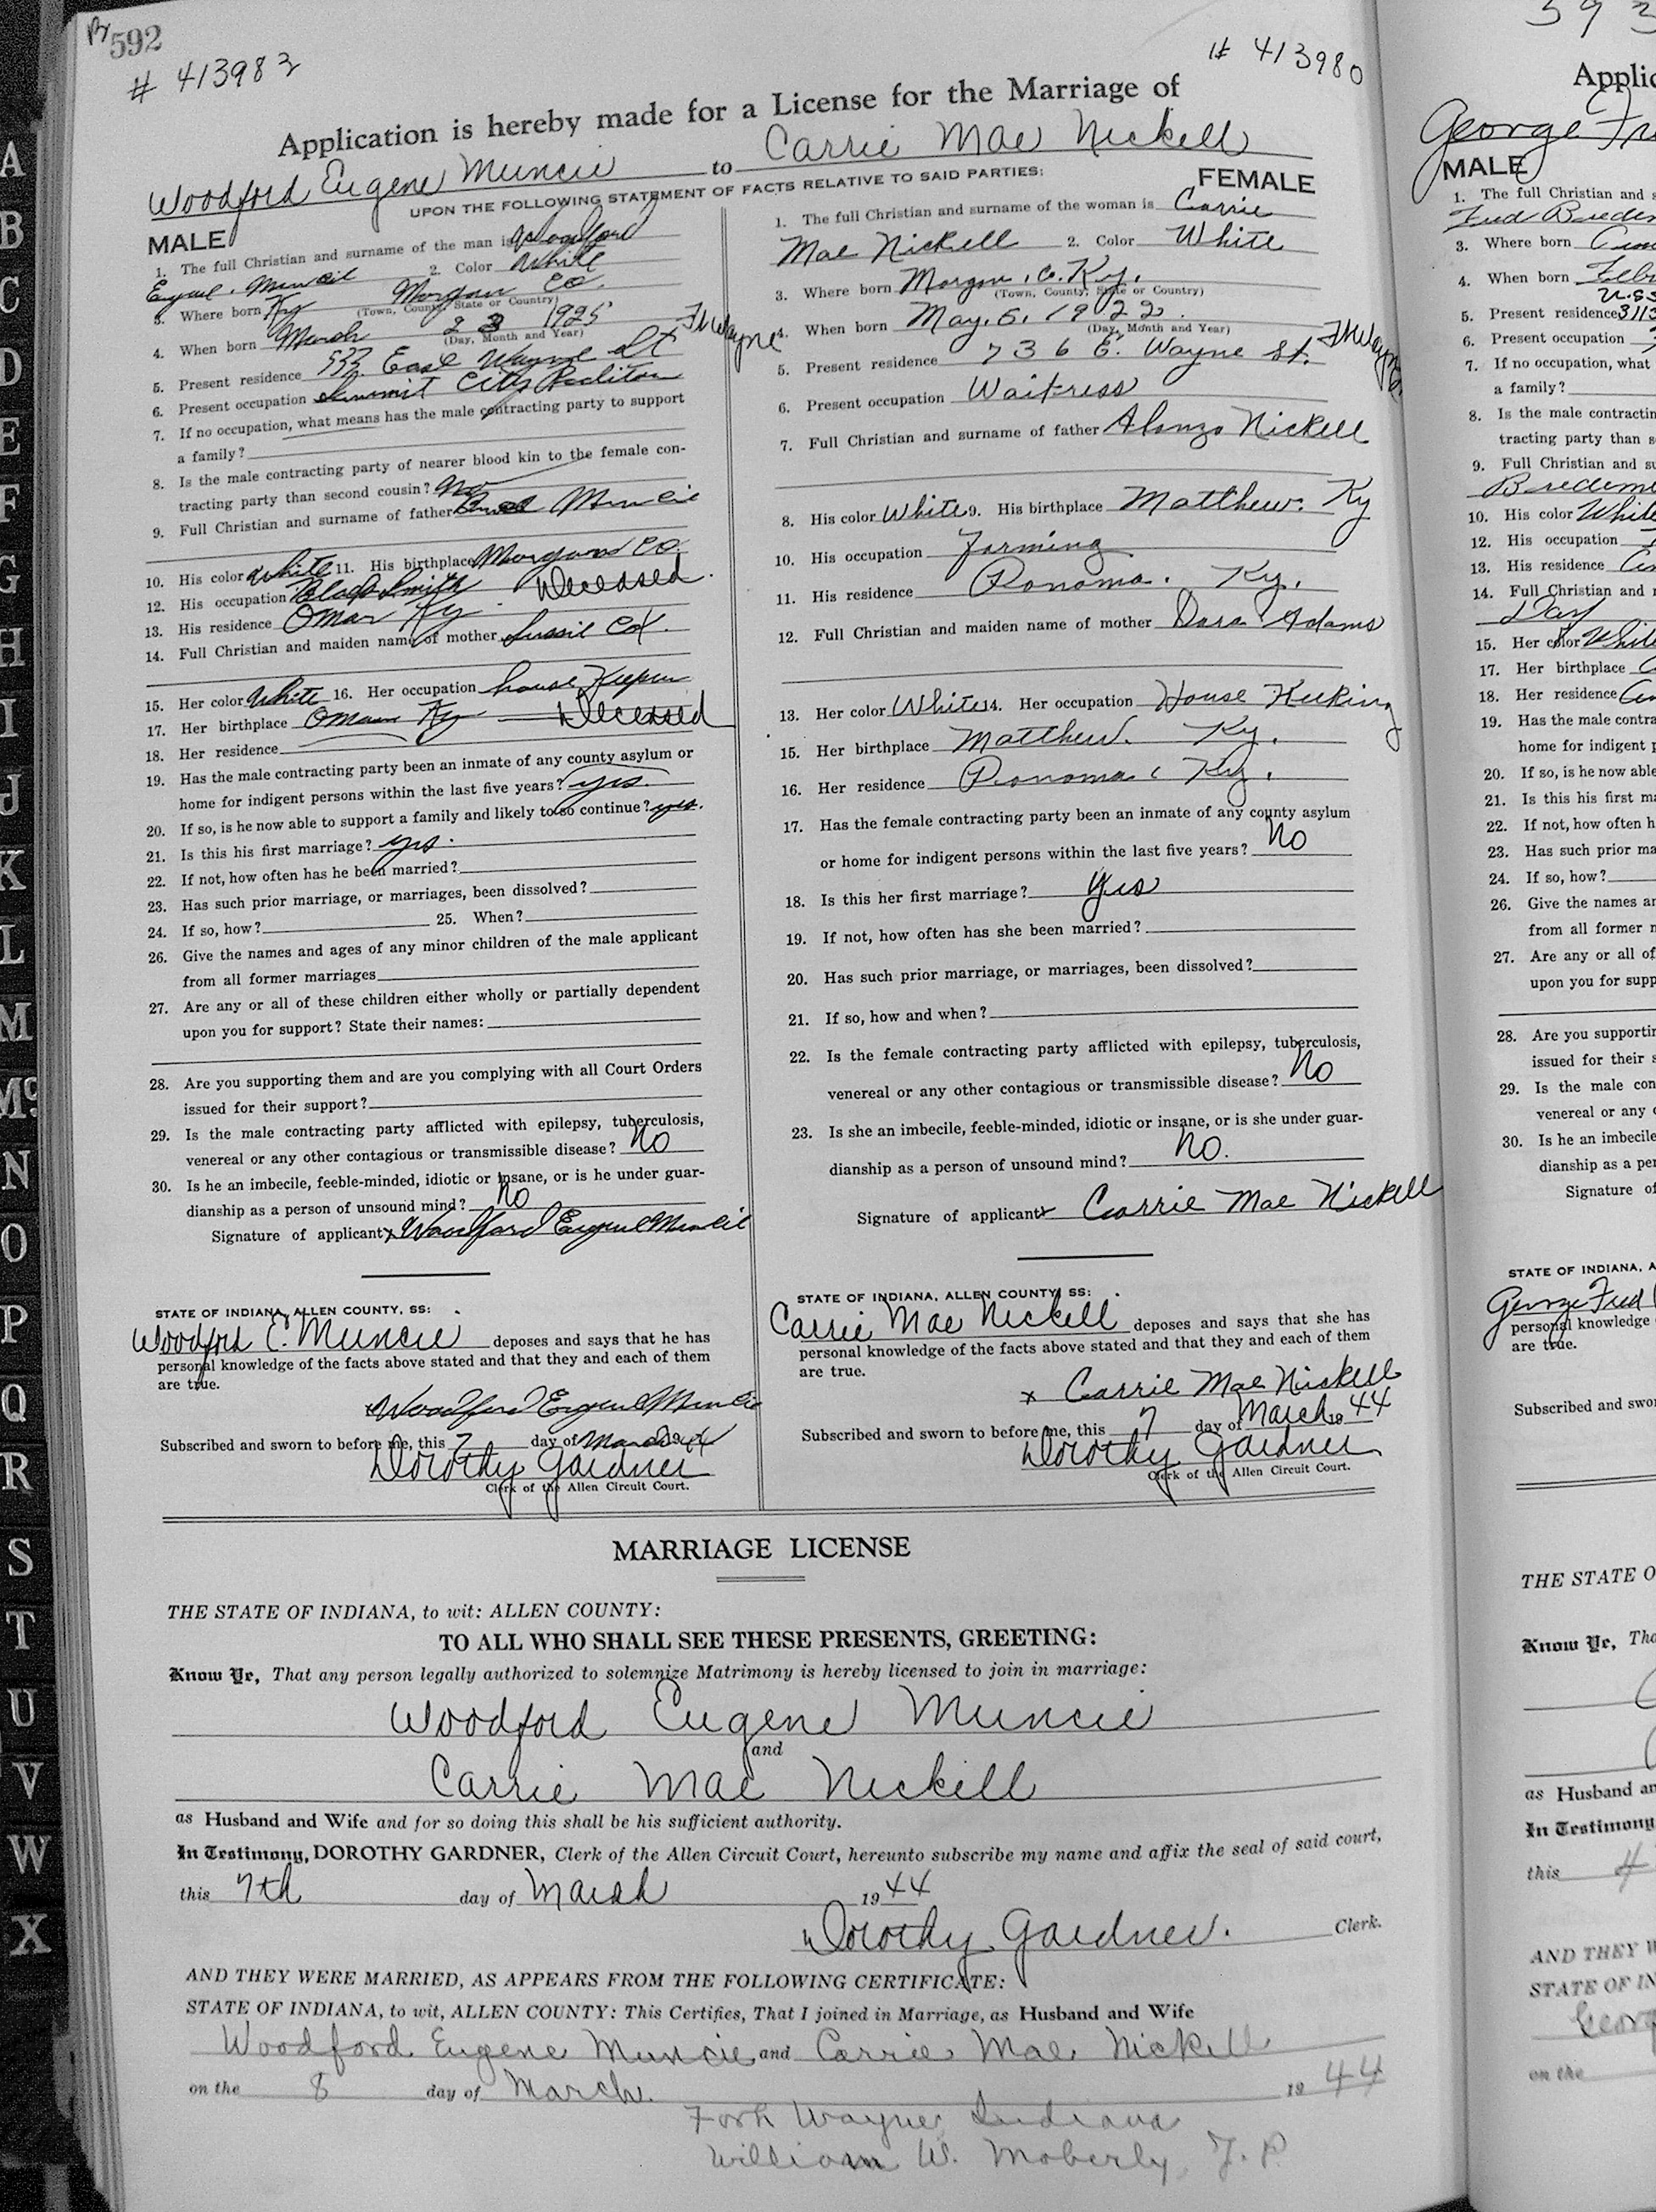 592
# 413982
# 413980
Application is hereby made for a License for the Marriage of
Woodford Eugene Muncie to Carrie Mae Nickell
UPON THE FOLLOWING STATEMENT OF FACTS RELATIVE TO SAID PARTIES:
MALE
1. The full Christian and surname of the man is Woodford
Eugene Muncie 2. Color White
3. Where born Ky Morgan Co.
(Town, County, State or Country)
4. When born March 23 1925
(Day, Month and Year)
5. Present residence East Wayne St Ft Wayne
6. Present occupation Summit City
7. If no occupation, what means has the male contracting party to support
a family?
8. Is the male contracting party of nearer blood kin to the female con-
tracting party than second cousin? No
9. Full Christian and surname of father Muncie
10. His color White 11. His birthplace Morgan Co.
12. His occupation Black Smith Deceased.
13. His residence Omar Ky
14. Full Christian and maiden name of mother Cox.
15. Her color White 16. Her occupation house Keeper
17. Her birthplace Omar Ky Deceased
18. Her residence
19. Has the male contracting party been an inmate of any county asylum or
home for indigent persons within the last five years? yes.
20. If so, is he now able to support a family and likely to so continue? yes.
21. Is this his first marriage? yes.
22. If not, how often has he been married?
23. Has such prior marriage, or marriages, been dissolved?
24. If so, how? 25. When?
26. Give the names and ages of any minor children of the male applicant
from all former marriages
27. Are any or all of these children either wholly or partially dependent
upon you for support? State their names:
28. Are you supporting them and are you complying with all Court Orders
issued for their support?
29. Is the male contracting party afflicted with epilepsy, tuberculosis,
venereal or any other contagious or transmissible disease? No
30. Is he an imbecile, feeble-minded, idiotic or insane, or is he under guar-
dianship as a person of unsound mind? No
Signature of applicant x Woodford Eugene Muncie
STATE OF INDIANA, ALLEN COUNTY, SS:
Woodford E. Muncie deposes and says that he has
personal knowledge of the facts above stated and that they and each of them
are true.
x Woodford Eugene Muncie
Subscribed and sworn to before me, this 7 day of March 1944
Dorothy Gardner
Clerk of the Allen Circuit Court.
FEMALE
1. The full Christian and surname of the woman is Carrie
Mae Nickell 2. Color White
3. Where born Morgan, Co. Ky.
(Town, County, State or Country)
4. When born May, 6, 1922.
(Day, Month and Year)
5. Present residence 736 E. Wayne St. Ft Wayne
6. Present occupation Waitress
7. Full Christian and surname of father Alonzo Nickell
8. His color White 9. His birthplace Matthew. Ky
10. His occupation Farming
11. His residence Ponoma. Ky.
12. Full Christian and maiden name of mother Dora Adams
13. Her color White 14. Her occupation House Keeking
15. Her birthplace Matthew. Ky.
16. Her residence Ponoma, Ky.
17. Has the female contracting party been an inmate of any county asylum
or home for indigent persons within the last five years? No
18. Is this her first marriage? Yes
19. If not, how often has she been married?
20. Has such prior marriage, or marriages, been dissolved?
21. If so, how and when?
22. Is the female contracting party afflicted with epilepsy, tuberculosis,
venereal or any other contagious or transmissible disease? No
23. Is she an imbecile, feeble-minded, idiotic or insane, or is she under guar-
dianship as a person of unsound mind? No.
Signature of applicant x Carrie Mae Nickell
STATE OF INDIANA, ALLEN COUNTY, SS:
Carrie Mae Nickell deposes and says that she has
personal knowledge of the facts above stated and that they and each of them
are true.
x Carrie Mae Nickell
Subscribed and sworn to before me, this 7 day of March 1944
Dorothy Gardner
Clerk of the Allen Circuit Court.
MARRIAGE LICENSE
THE STATE OF INDIANA, to wit: ALLEN COUNTY:
TO ALL WHO SHALL SEE THESE PRESENTS, GREETING:
Know Ye, That any person legally authorized to solemnize Matrimony is hereby licensed to join in marriage:
Woodford Eugene Muncie
and
Carrie Mae Nickell
as Husband and Wife and for so doing this shall be his sufficient authority.
In Testimony, DOROTHY GARDNER, Clerk of the Allen Circuit Court, hereunto subscribe my name and affix the seal of said court,
this 7th day of March 1944
Dorothy Gardner. Clerk.
AND THEY WERE MARRIED, AS APPEARS FROM THE FOLLOWING CERTIFICATE:
STATE OF INDIANA, to wit, ALLEN COUNTY: This Certifies, That I joined in Marriage, as Husband and Wife
Woodford Eugene Muncie and Carrie Mae Nickell
on the 8 day of March. 1944
Fort Wayne, Indiana
William W. Moberly, J. P.
A
B
C
D
E
F
G
H
I
J
K
L
M
Mc
N
O
P
Q
R
S
T
U
V
W
X
593
George
MALE
1. The full Christian and
3. Where born
4. When born
5. Present residence 3113
6. Present occupation
7. If no occupation, what
a family?
8. Is the male
tracting party than
9. Full Christian and
10. His color White
12. His occupation
13. His residence
14. Full Christian and
Day
15. Her color White
17. Her birthplace
18. Her residence
19. Has the male
home for indigent
20. If so, is he now able
21. Is this his first
22. If not, how often
23. Has such prior
24. If so, how?
26. Give the names
from all former
27. Are any or all of
upon you for
28. Are you
issued for their
29. Is the male
venereal or any
30. Is he an imbecile
dianship as a
Signature of
STATE OF INDIANA,
George Fred
personal knowledge
are true.
Subscribed and
THE STATE
Know Ye,
as Husband
In Testimony
this 4
AND THEY
STATE OF
on the